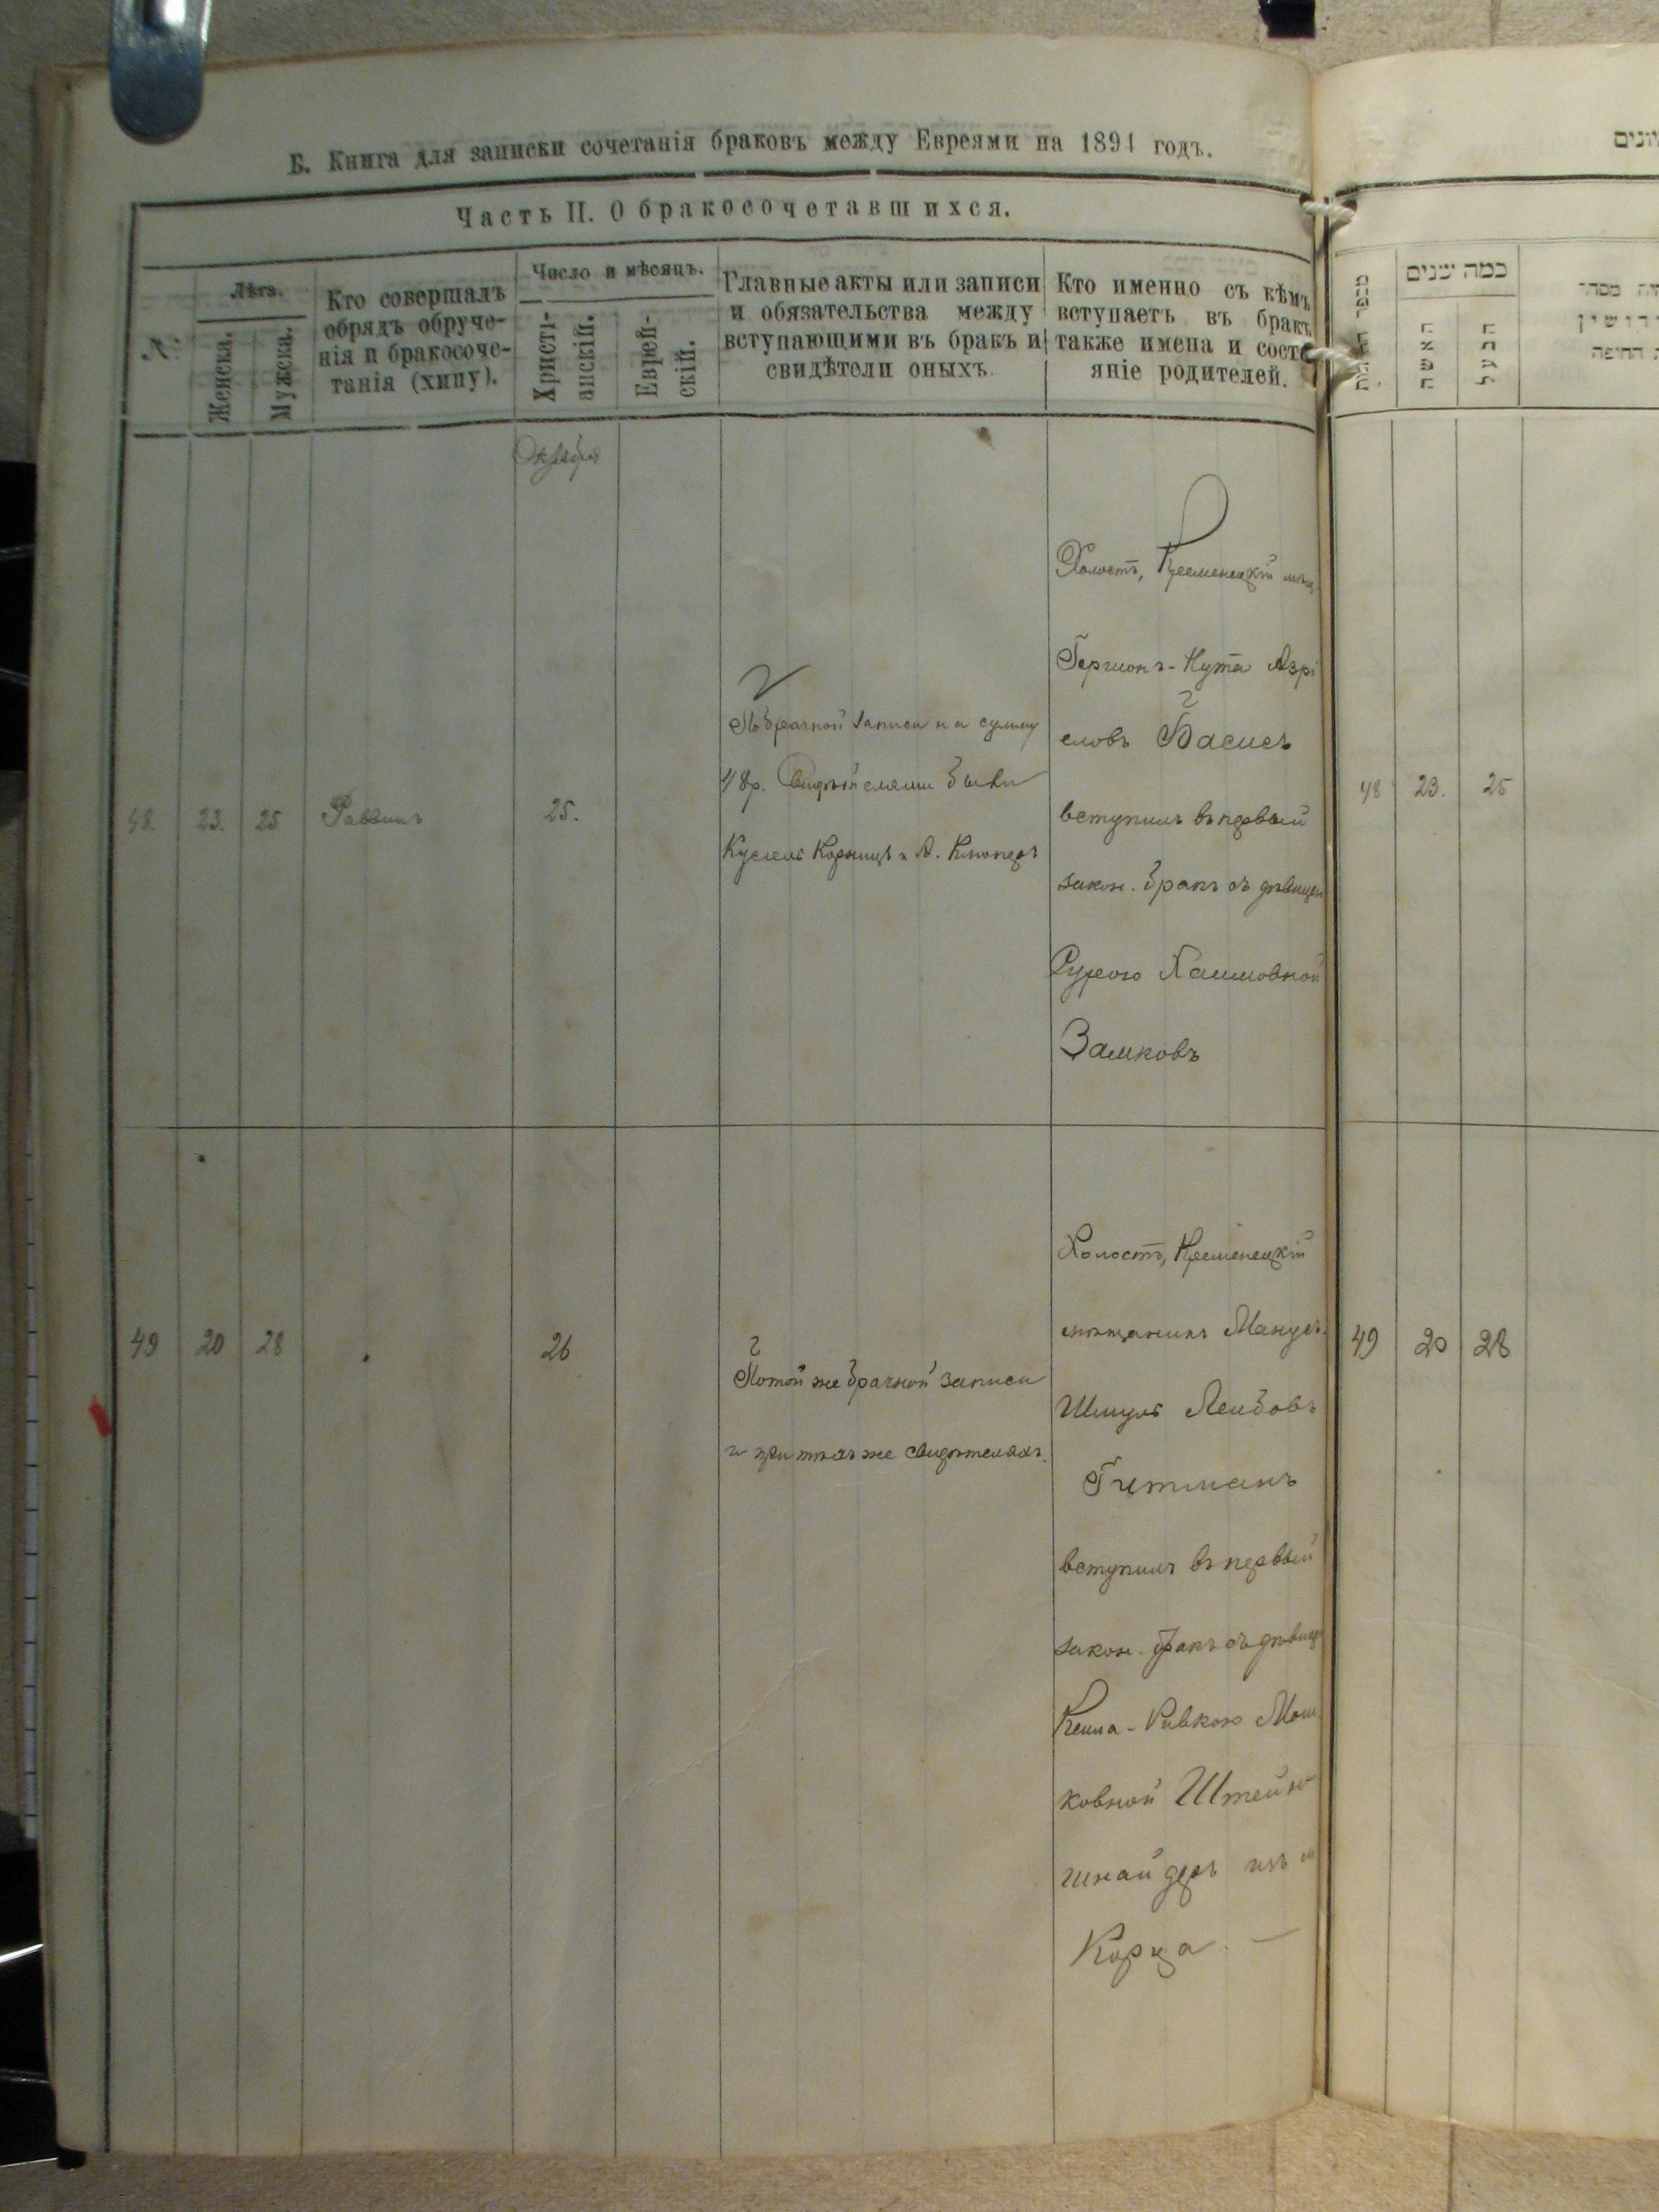 Б. Книга для записки сочетанія браковъ между Евреями на 1891 годъ.
Часть II. О бракосочетавшихся.
№
Лѣта.
Женска.
Мужска.
Кто совершалъ
обрядъ обруче-
нія и бракосоче-
танія (хипу).
Число и мѣсяцъ.
Христі-
анскій.
Еврей-
скій.
Главные акты или записи
и обязательства между
вступающими въ бракъ и
свидѣтели оныхъ.
Кто именно съ кѣмъ
вступаетъ въ бракъ
также имена и состо
яніе родителей.
Октября
48. 23. 25 Раввинъ 25.
По брачной записи на сумму
48 р. Свидѣтелями были
Кусіель Корницъ и А.
Холостъ, Кременецкій мѣщ.
Гершонъ-Нута Азрі
еловъ Басисъ
вступилъ въ первый
закон. бракъ съ дѣвицею
Хаимовной
Замковъ
49 20 28 26
По той же брачной записи
и при тѣхъ же свидѣтеляхъ.
Холостъ, Кременецкій
мѣщанинъ
Шмуль Лейбовъ
Гитманъ
вступилъ въ первый
закон. бракъ съ дѣвице
Ривкою Мош
ковной Штейн
шнайдеръ изъ м
Корца. —
כמה שנים
האשה
הבעל
48 23. 25
49 20 28